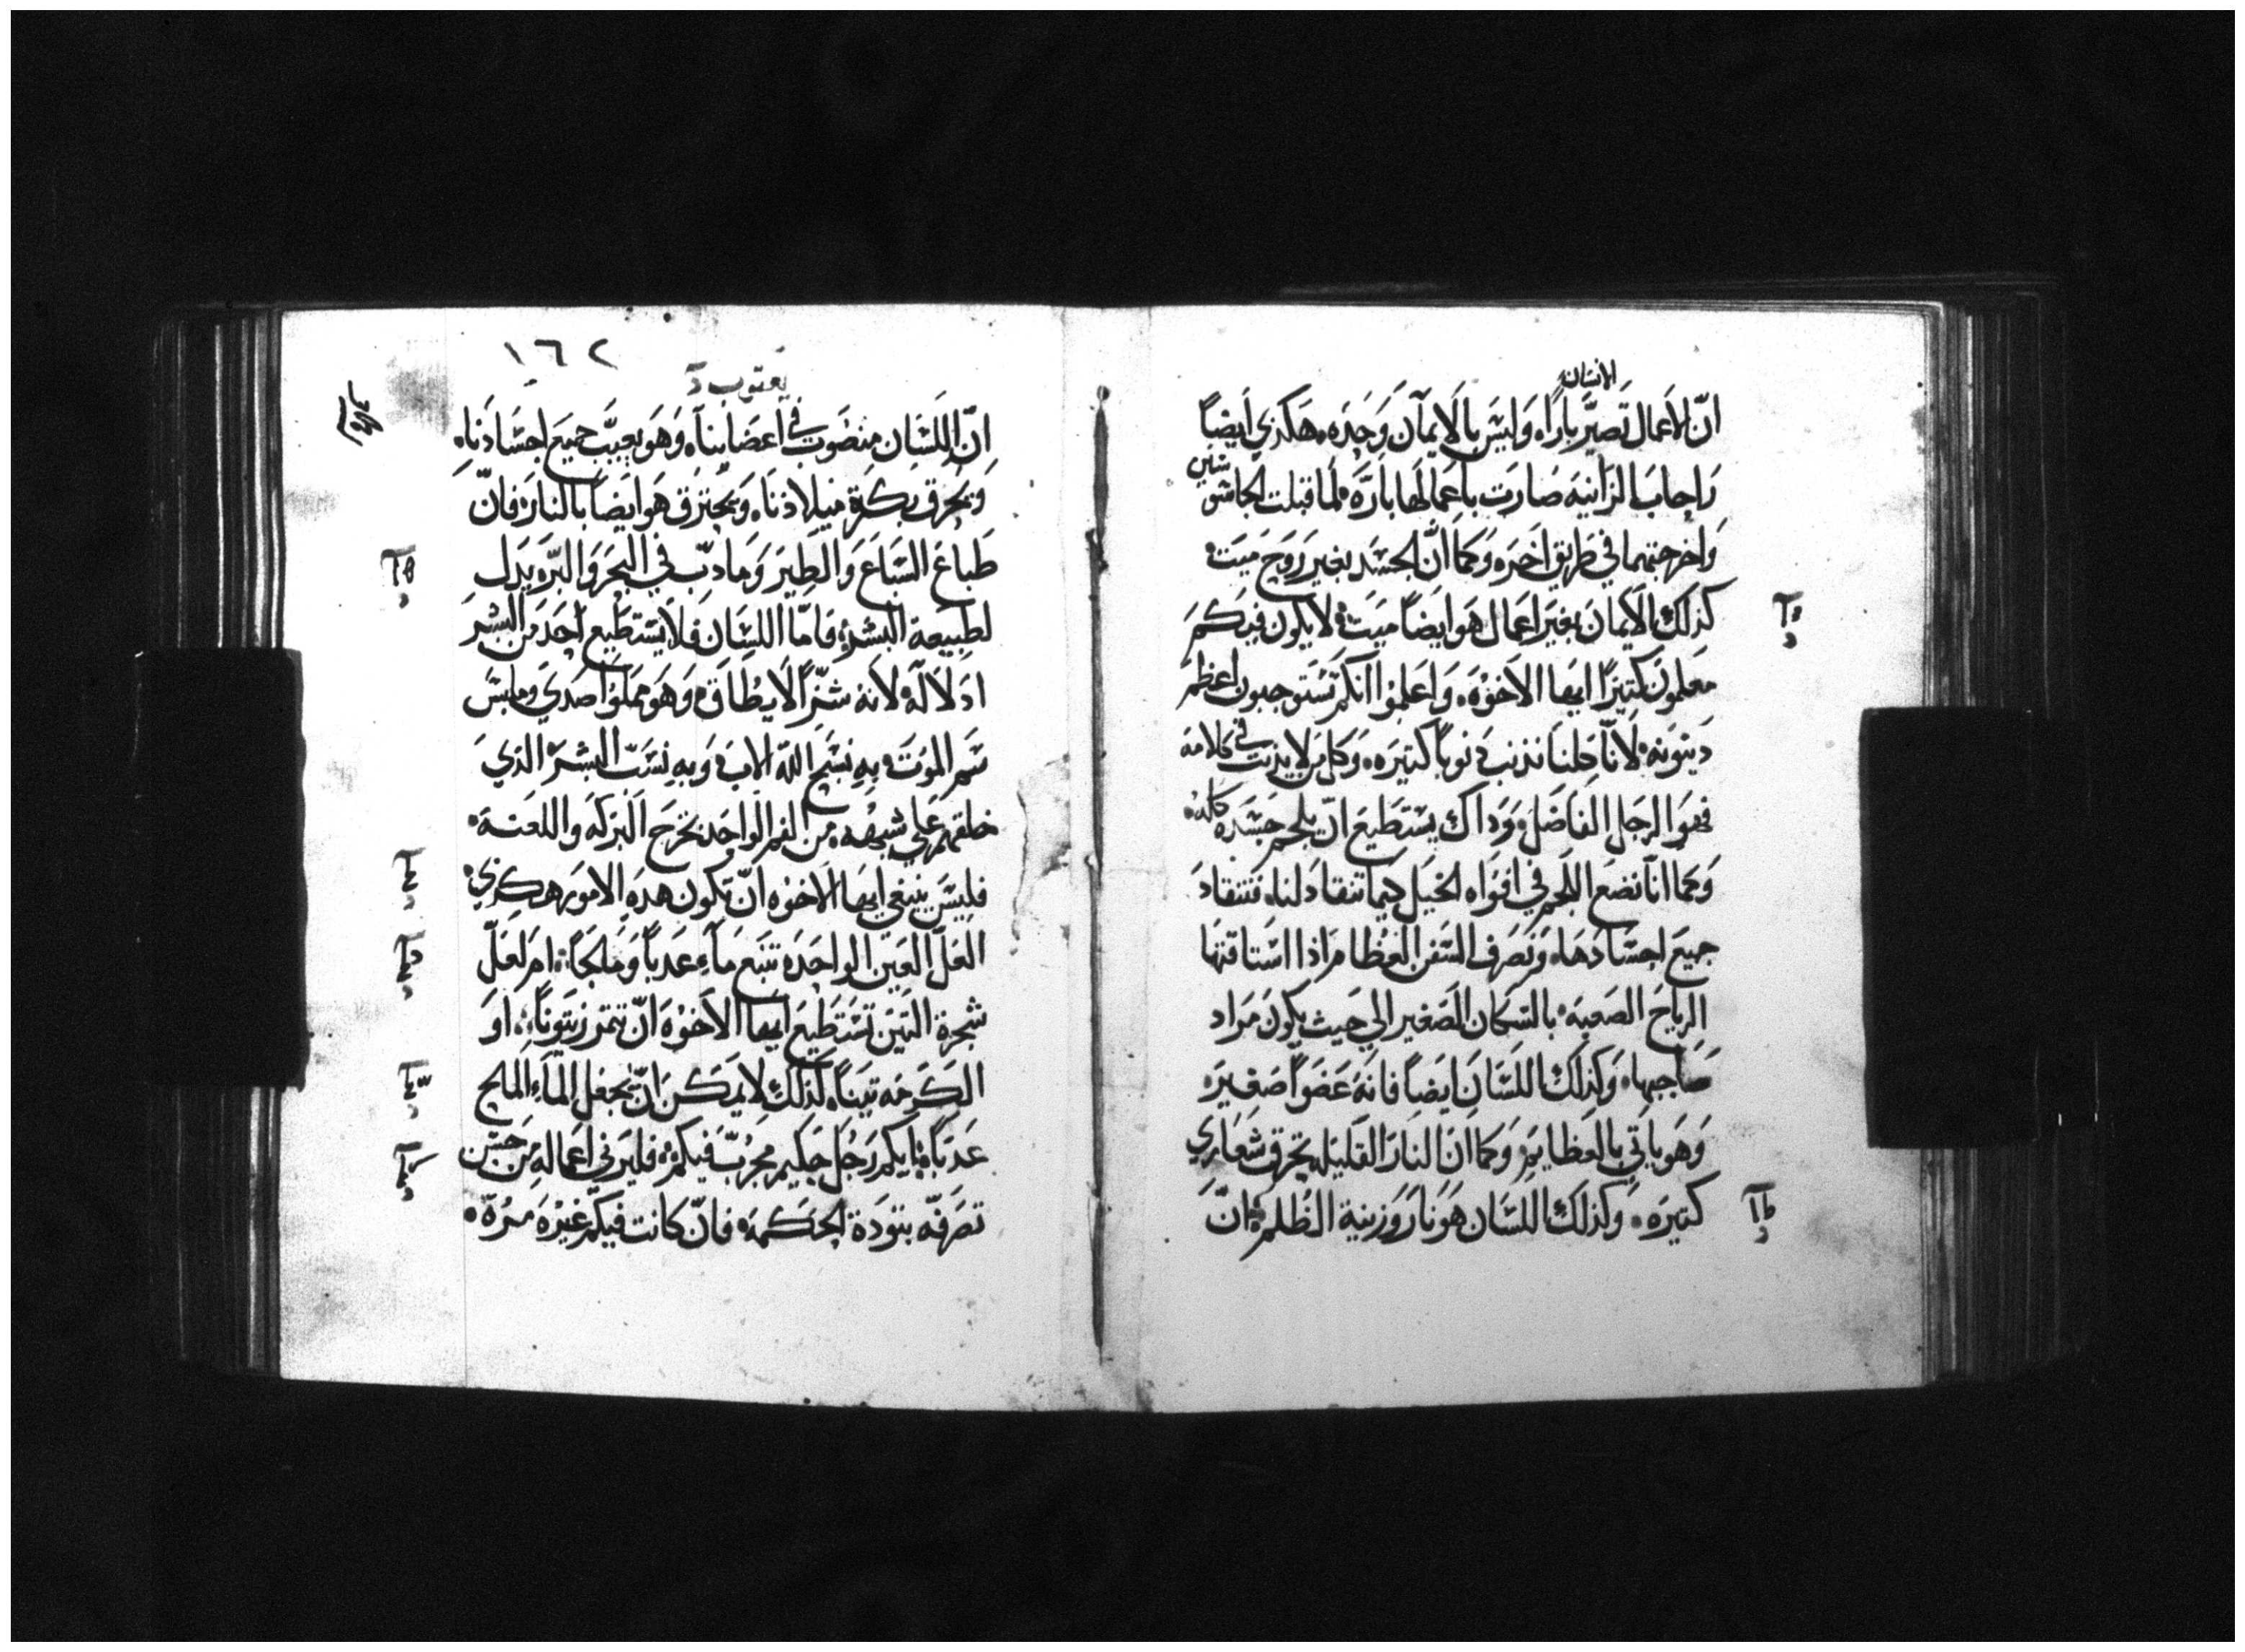 الانسان
انّ الاَعمال تَصيّر بارًا، وَليسَ بالاَيمآن وَحِدَه. هَكذي اَيضاً
رَاحابَ الزانيَه صَارَت باعِمالهَا بارَّه لما قبلت الجاسوسين
وَاخرجتهما في طريق اَخرَه وَكما انَّ الجسَد بغير رَوحَ ميَت
كذلكَ الاَيمان بغيرَ اعَمال هَو ايضاً ميَت لا يَكون فيَكم
معَلمونَ كتيرًا ايها الاَخوَه. وَاعَلموا انكم تسَتوجبون اعَظم
دَينوَنه لاَنّا كلنا نذنبَ دَنوباً كتيرَه. وَكل مَن لا يذنب في كلامه
فهوَا الرجل الفاضَل وَدَاك يسَتَطيعَ انّ يلجم جَسَدَه كله
وَكما انّا نضع اللجم في افوَاه الخيَل كيما تنقادَ لنا، فتنقادَ
جميعَ اجسَادَها، وَنصَرف السَفن العَظام اذا اسَتاقتها
الرياحَ الصَعبَه بالسَكان الصَغير الي حَيث يكونَ مَرَاد
صَاحِبها، وَكذلكَ اللسَانَ ايضَاً فانهَ عَضَواً صَغيرَه
وَهَو ياتي بالعَظايم وَكما انَ النارَ القليله تحرَق شعَاري
كتيرَه. وَكذلكَ اللسَان هَو نارَ وَزينة الظلم انّ
١٦٢
يعقوب
انّ اللسَان منصَوبَ في اعَضاينا، وَهَو يعيبَّ جميَع اجسَادَنا،
وَيحرق بكرة ميلادنا، وَيحترَق هَو ايضَاً بالنارَ، فانّ
طَباعَ السَباعَ وَالطيرَ وَما دَبّ في البَحرَ وَالبرّ، يدَل
لطبيعة البشر، فامّا اللسَان فلا يسَتطَيع احَد مَن البشرَ
ادَلاله لانهُ شرّاً لا يطاق، وَهَو مَملوَا صَدي وملبسَ
سَم الموَتَ بهِ نسَبح اللهّ الابَ، وَبهِ نسَبّ البشر الذيَ
خلقهم عَلي شبَهه من الفم الواحَد تخرَجَ البَركَه وَاللعنَة
فليسَ ينبغي ايها الاخوَه انّ تكونَ هدهِ الامورَ هكذي
العَلّ العَين الواحَدَه تنبَع مَاءِ عَدباً وَمَالحَاً، امَ لعَلّ
شجرة التينَ تسَتطَيع ايها الاَخوَه انّ تتمرَ زيتَوناً، اوَ
الكرَمَه تيناً، كذلكَ لا يمكن انّ تجعَل الماَء المالح
عَدباً، ايكم رَجُل حَكيم مجرّبّ فيكم، فليرَني اعَماله مَن حَسَن
تصَرفّه بتودَة الحَكمه، فانّ كانت فيكمَ غيرَه مرَهّ